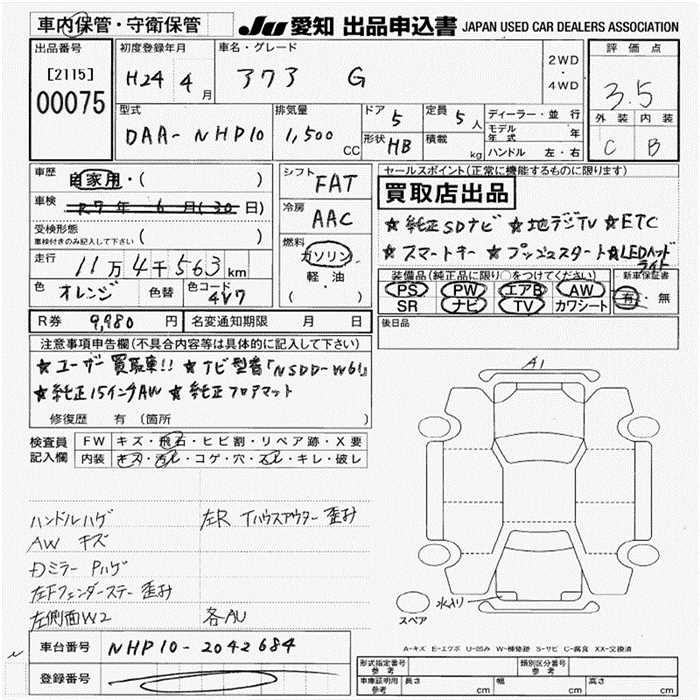 車内保管・守衛保管 JU 愛知 出品申込書 JAPAN USED CAR DEALERS ASSOCIATION
出品番号 初度登録年月 車名・グレード 2WD・4WD 評価点
[2115] H24 4月 アクア G 3.5
00075
型式 排気量 ドア 5 定員 5人 ディーラー・並行 外装 内装
DAA-NHP10 1,500CC 形状 HB 積載 kg モデル年式 年 C B
ハンドル 左・右
車歴 自家用・( ) シフト FAT セールスポイント(正常に機能するものに限ります)
車検 R7年 6月(30日) 買取店出品
受検形態 車検付きのみ記入して下さい ( ) 冷房 AAC ★純正SDナビ ★地デジTV ★ETC
走行 11万4千563km 燃料 ガソリン 軽・油 ( ) ★スマートキー ★プッシュスタート ★LEDヘッドライト
色 オレンジ 色替 色コード 4V7 装備品(純正品に限り○をつけてください) 新車保証書
PS PW エアB AW 有・無
SR ナビ TV カワシート
R券 9,980円 名変通知期限 月 日 後日品
注意事項申告欄(不具合内容等は具体的に記入して下さい)
★ユーザー買取車!! ★ナビ型番「NSDD-W61」
★純正15インチAW ★純正フロアマット
修復歴 有 (箇所 )
A1
検査員記入欄 FW キズ・飛石・ヒビ割・リペア跡・X要
内装 キズ・汚レ・コゲ・穴・スレ・キレ・破レ
ハンドルハゲ 左R Tハウスアウター歪み
AW キズ
ミラー Pハゲ
左Fフェンダーステー歪み
左側面W2 各AU
水入り
スペア
A-キズ E-エクボ U-凹み W-補修跡 S-サビ C-腐食 XX-交換済
車台番号 NHP10-2042684
登録番号
形式指定番号 参考 類別区分番号 参考
車庫証明用 参考 長さ cm 幅 cm 高さ cm